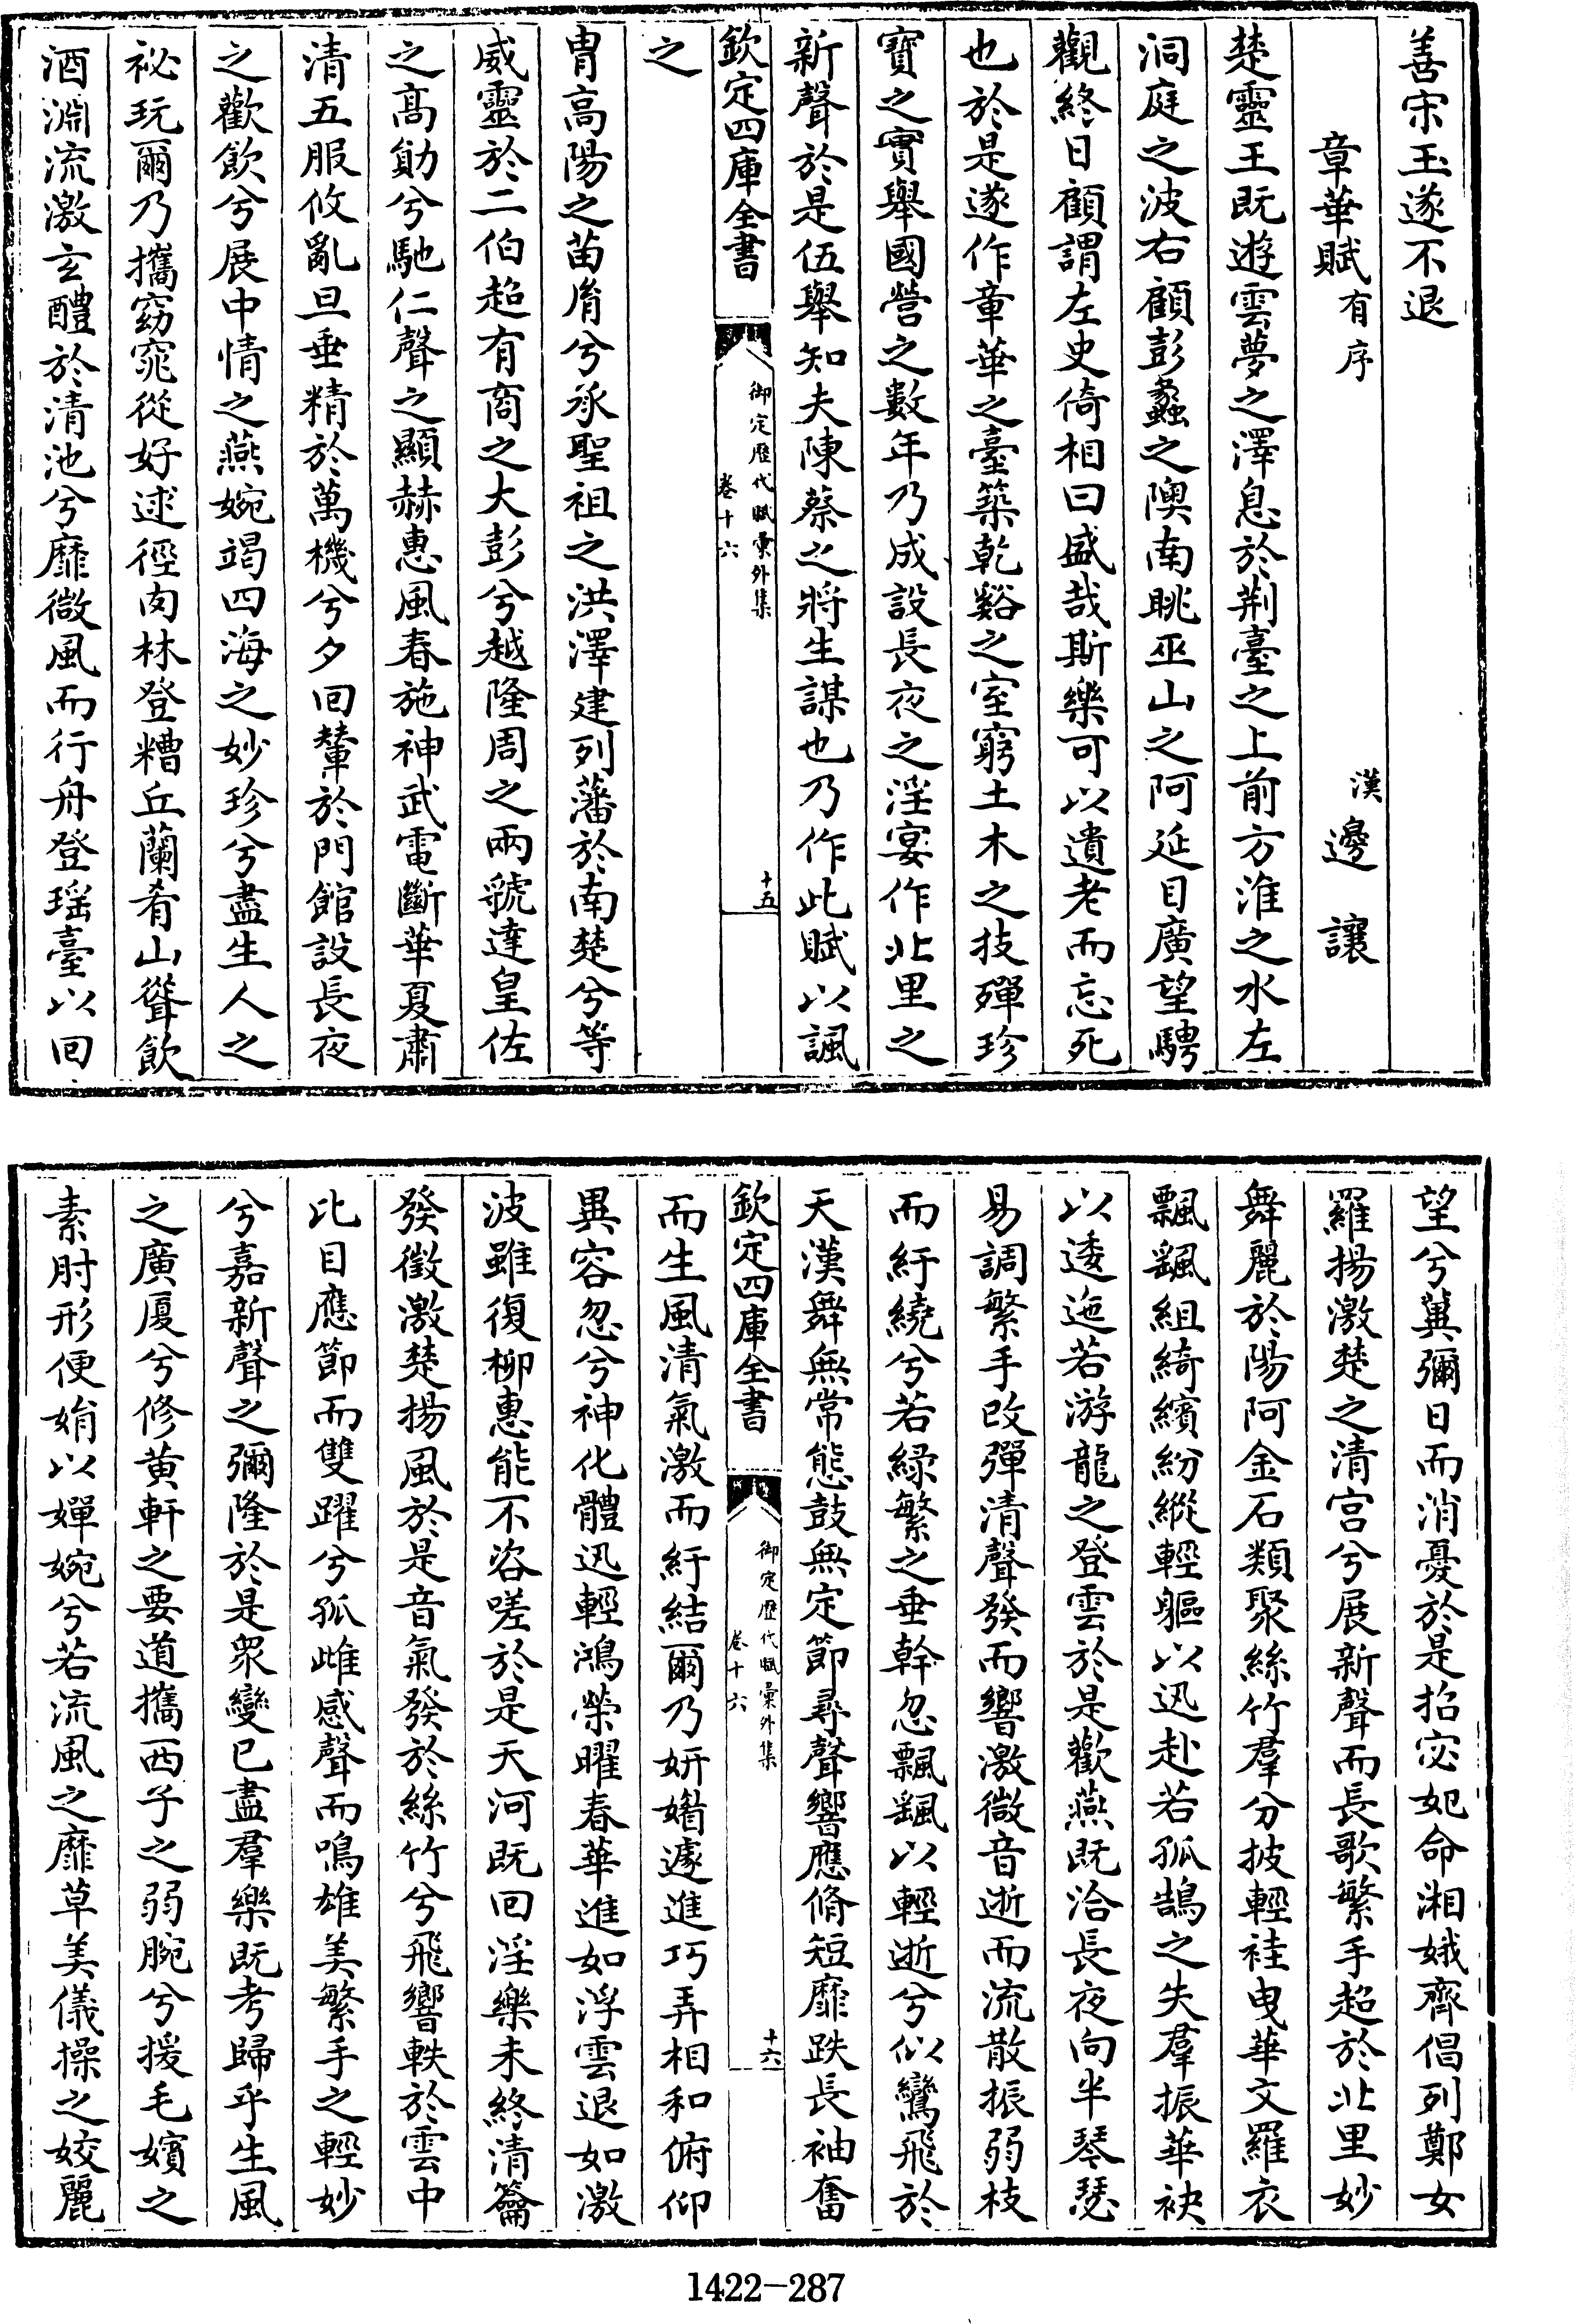 善宋玉遂不退
章華賦有序　漢邊讓
楚靈王既遊雲夢之澤息於荆臺之上前方淮之水左
洞庭之波右顧彭蠡之隩南眺巫山之阿延目廣望騁
觀終日顧謂左史倚相曰盛哉斯樂可以遺老而忘死
也於是遂作章華之臺築乾谿之室窮土木之技殫珍
寶之實舉國營之數年乃成設長夜之淫宴作北里之
新聲於是伍舉知夫陳蔡之將生謀也乃作此賦以諷
欽定四庫全書
御定歷代賦彙外集
卷十六
十五
之
胄高陽之苗胤兮承聖祖之洪澤建列藩於南楚兮等
威靈於二伯超有商之大彭兮越隆周之兩虢達皇佐
之高勛兮馳仁聲之顯赫惠風春施神武電斷華夏肅
清五服攸亂旦垂精於萬機兮夕回輦於門館設長夜
之歡飲兮展中情之燕婉竭四海之妙珍兮盡生人之
祕玩爾乃攜窈窕從好逑徑肉林登糟丘蘭肴山聳飲
酒淵流激玄醴於清池兮靡微風而行舟登瑶臺以回
望兮冀彌日而消憂於是招宓妃命湘娥齊倡列鄭女
羅揚激楚之清宫兮展新聲而長歌繁手超於北里妙
舞麗於陽阿金石類聚絲竹羣分披輕袿曳華文羅衣
飄颻組綺繽紛縱輕軀以迅赴若孤鵠之失羣振華袂
以逶迤若游龍之登雲於是歡燕既洽長夜向半琴瑟
易調繁手改彈清聲發而響激微音逝而流散振弱枝
而紆繞兮若緑繁之垂幹忽飄颻以輕逝兮似鸞飛於
天漢舞無常態鼓無定節尋聲響應脩短靡跌長袖奮
欽定四庫全書
御定歷代賦彙外集
卷十六
十六
而生風清氣激而紆結爾乃妍媚遽進巧弄相和俯仰
異容忽兮神化體迅輕鴻榮曜春華進如浮雲退如激
波雖復柳惠能不咨嗟於是天河既回淫樂未終清籥
發徵激楚揚風於是音氣發於絲竹兮飛響軼於雲中
比目應節而雙躍兮孤雌感聲而鳴雄美繁手之輕妙
兮嘉新聲之彌隆於是衆變已盡羣樂既考歸乎生風
之廣厦兮修黄軒之要道攜西子之弱腕兮援毛嬪之
素肘形便娟以嬋婉兮若流風之靡草美儀操之姣麗
1422-287